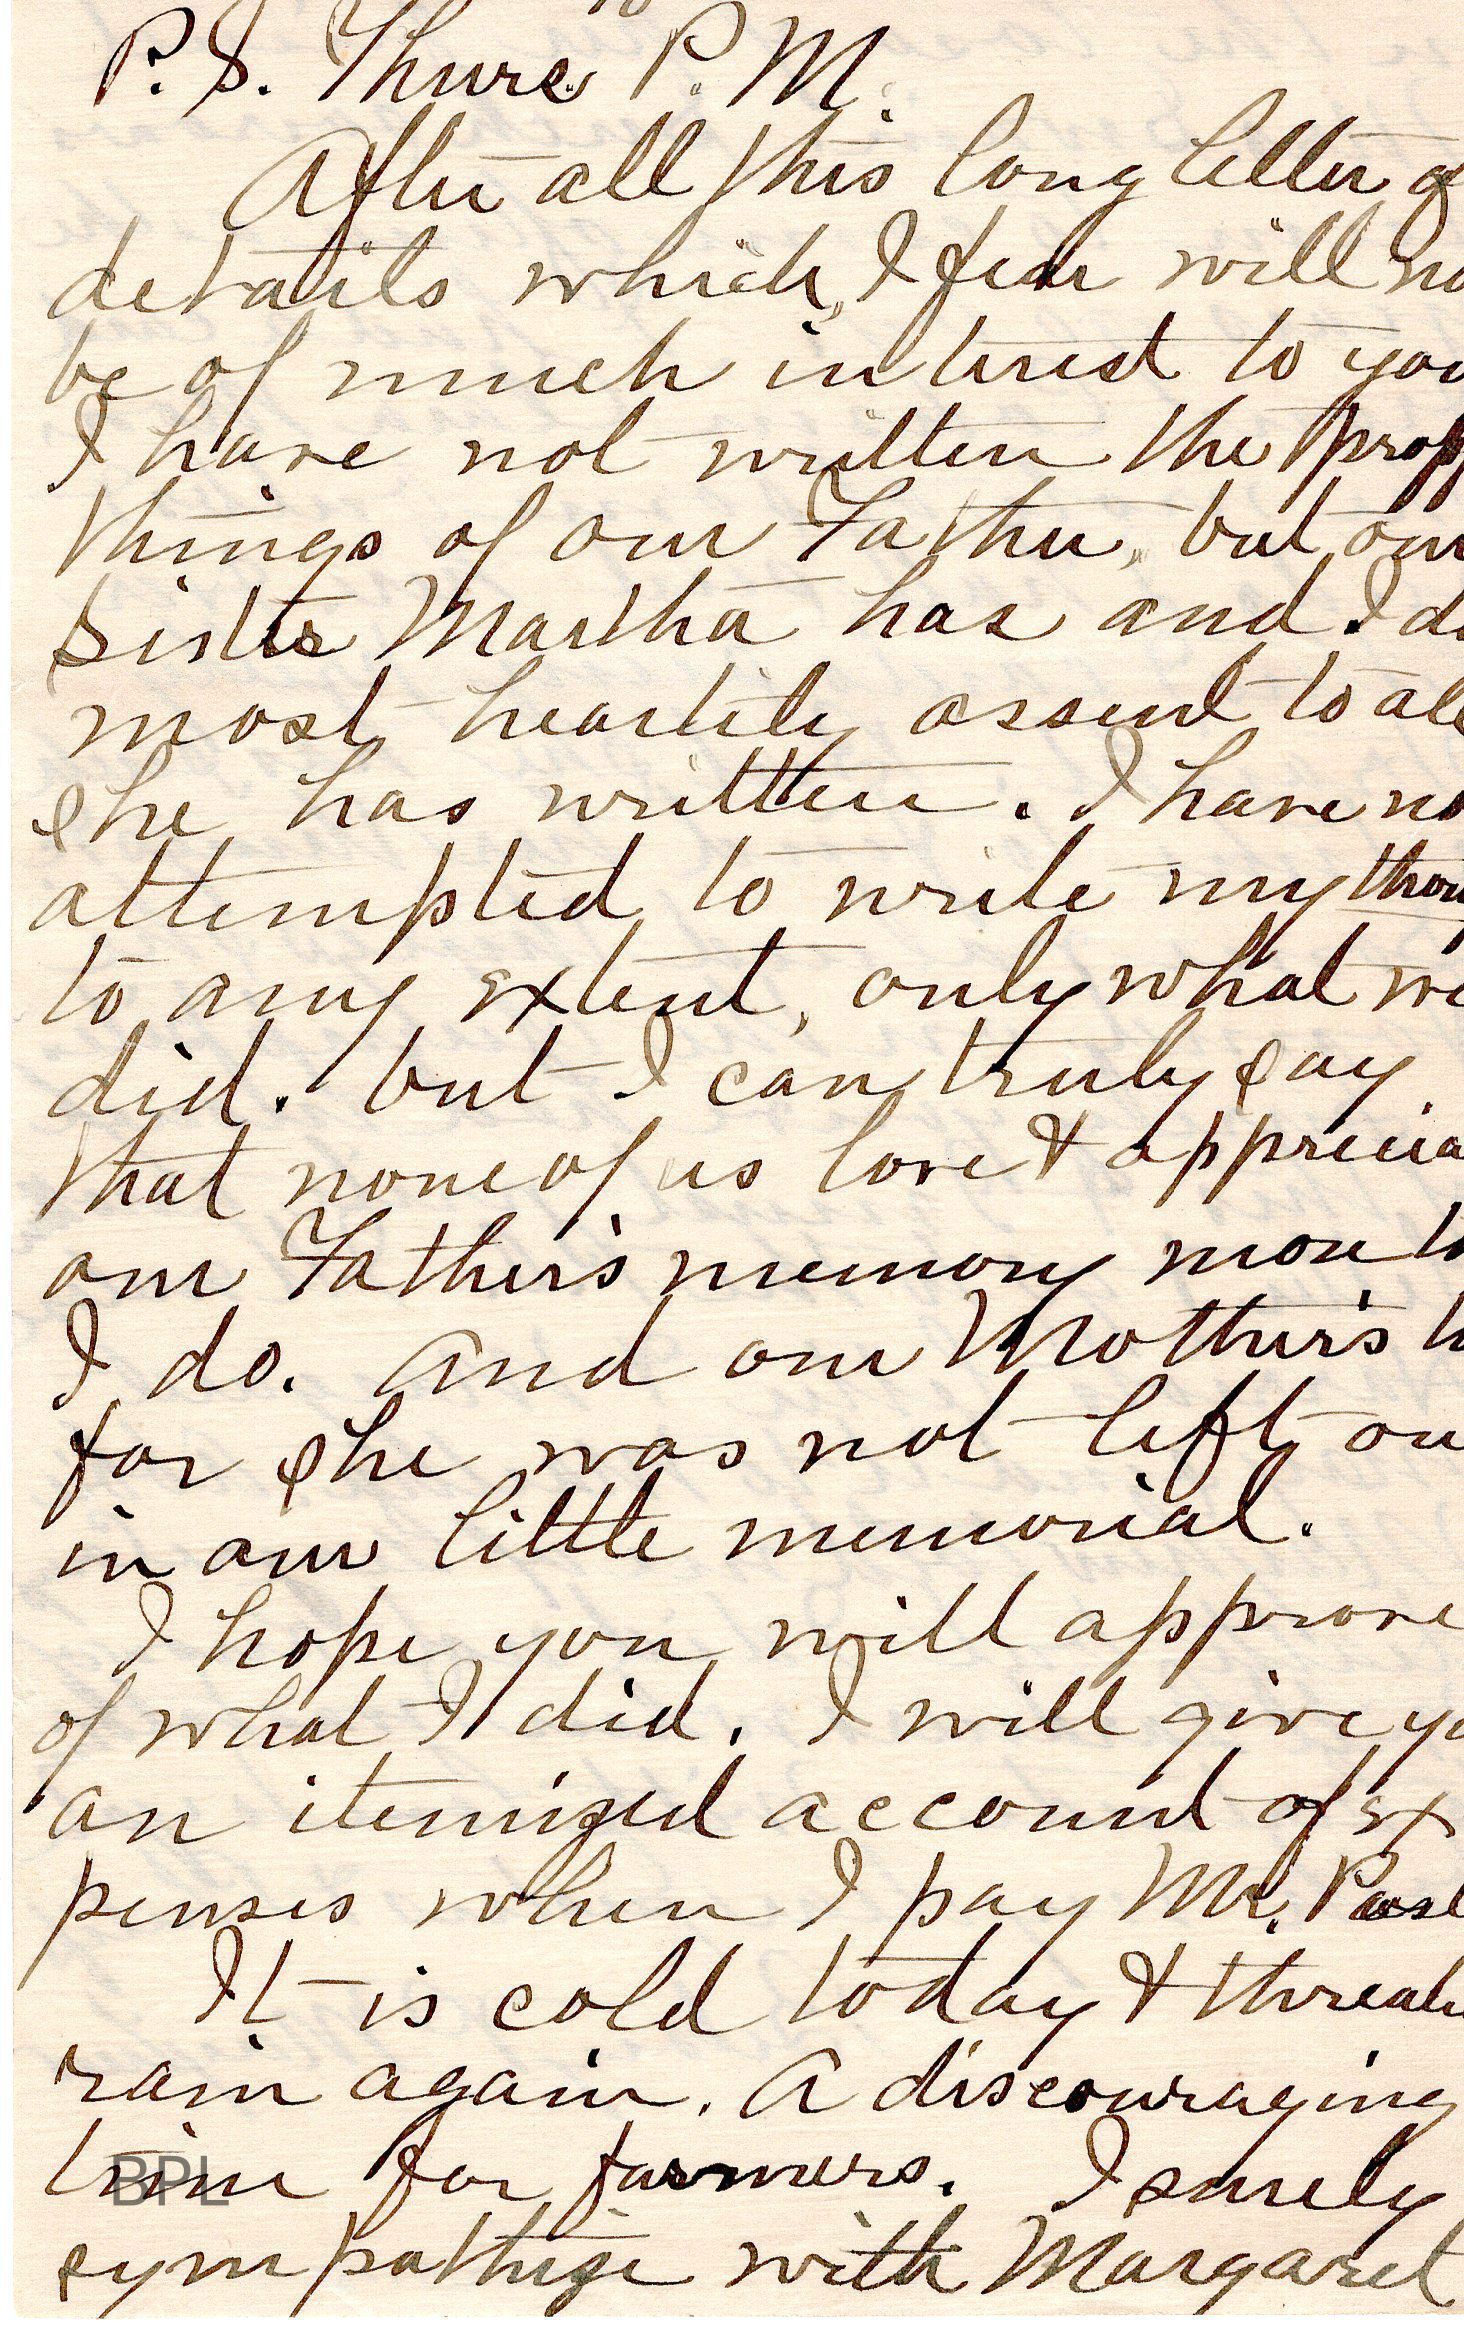 P. S. Thurs P. M.
After all this long letter of
details which, I fear will no
be of much interest to you
I have not written the prop
things of our Father, but our
Sister Martha has and I do
most heartily assent to all
she has written. I have no
attempted to write my thou
to any extent, only what we
did. but I can truly say
that none of us love & apprecia
our Father's memory more t
I do. And our Mother's t
for she was not left ou
in our little memorial.
I hope you will approve
of what I did. I will give yo
an itemized account of ex
penses when I pay Mr.
It is cold today & threate
rain again. A discouraging
time for farmers. I surely
sympathize with Margaret
BPL